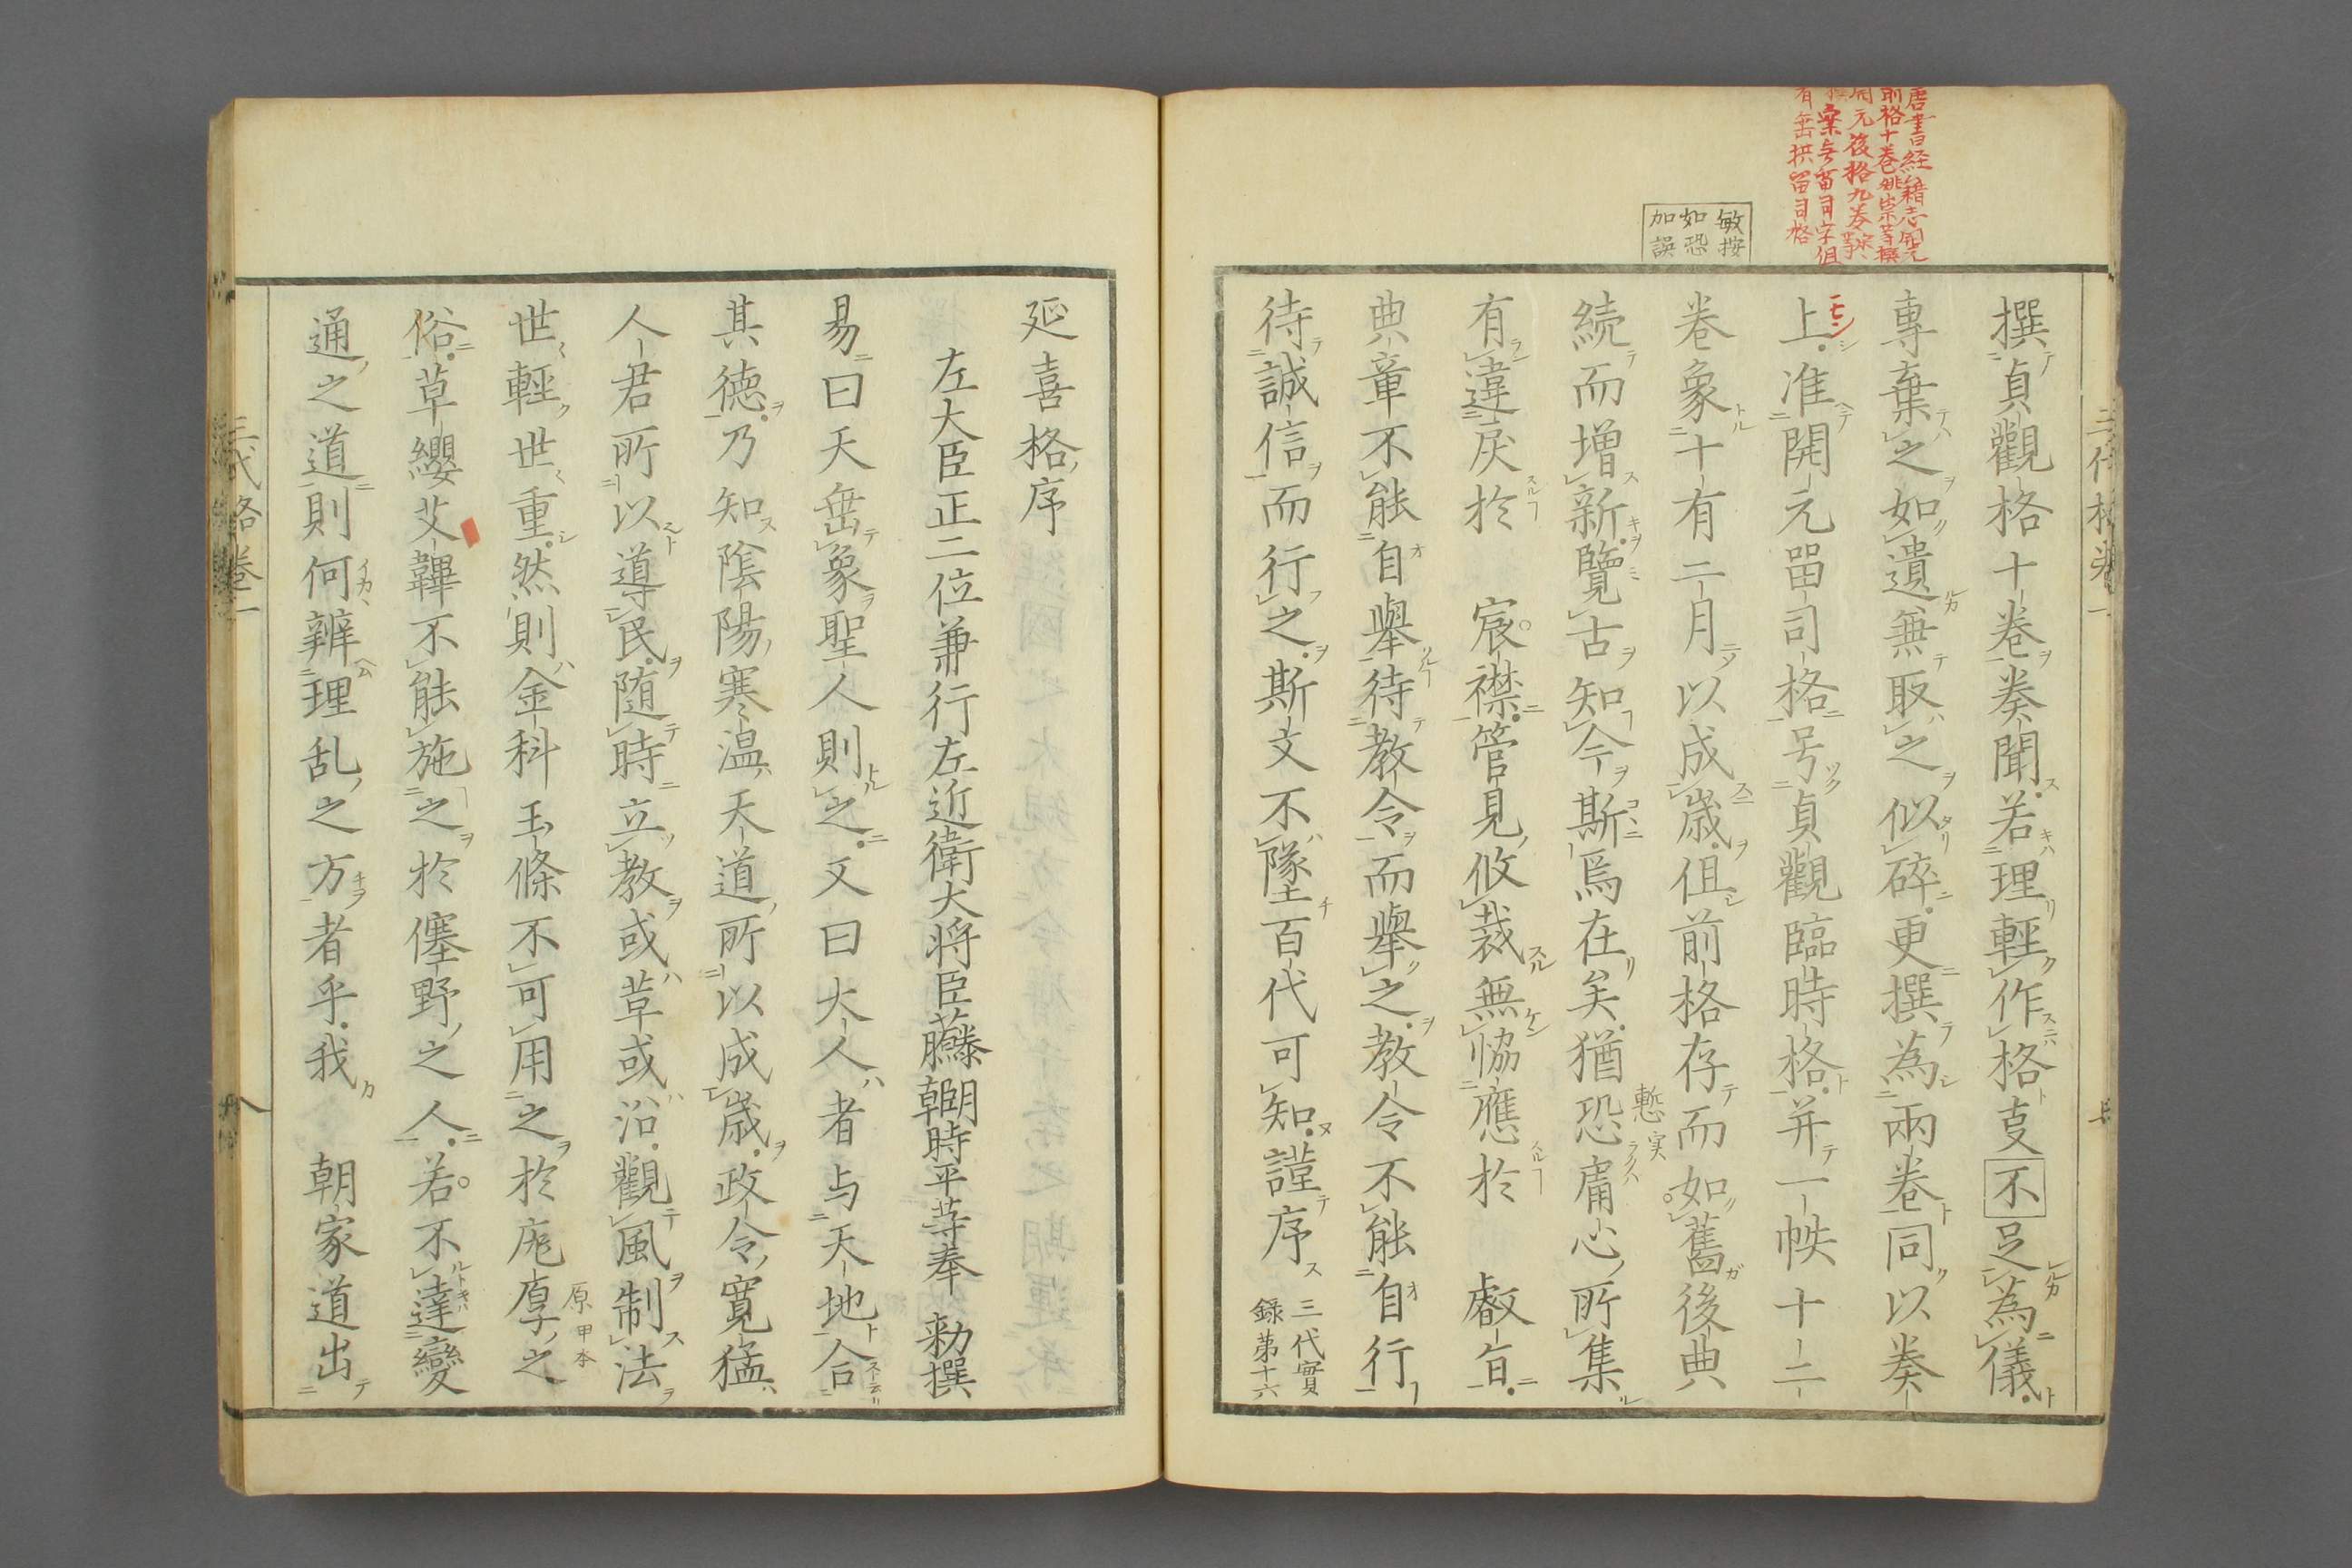 撰貞觀格十卷奏聞若理輕作格㕝不足為儀
專棄之如遺無取之似碎更撰為兩卷同以奏
上准開元留司格号貞觀臨時格并一帙十二
卷象十有二月以成歳但前格存而如舊後典
続而増新覽古知今斯焉在矣猶恐庸心所集
有違戻於 宸襟管見攸裁無恊應於 叡旨
典章不能自擧待教令而擧之教令不能自行
待誠信而行之斯文不墜百代可知謹序
三代實
録第十六
敏按
如恐
加誤
慙 実
延喜格序
左大臣正二位兼行左近衛大将臣藤朝臣時平等奉 勅撰
易曰天垂象聖人則之又曰大人者与天地合
其德乃知陰陽寒温天道所以成歳政令寬猛
人君所以導民随時立教或草或沿觀風制法
世輕世重然則金科玉條不可用之於庬厚之
原甲本
俗草纓艾鞸不能施之於僿野之人若不達變
通之道則何辨理乱之方者乎我 朝家道出
三代格卷一